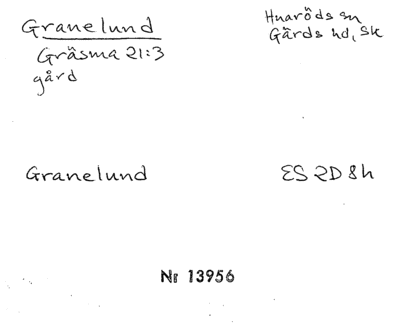 Granelund
Huaröds sn
Gräsma 21:3
Gärds hd, Sk
gård
Granelund
ES 2D 8h
Nr 13956